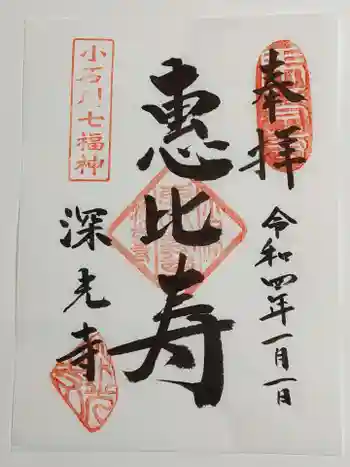 奉拝
令和四年一月一日
恵比寿
小石川七福神
深光寺